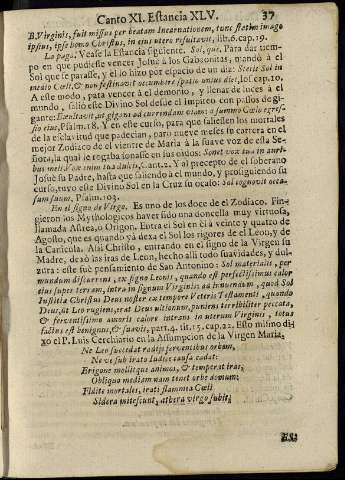 Canto XI. Estancia XLV. 37
B. Virginis, fuit missus per beatam Incarnationem, tunc statim imago
ipsius, ipse homo Christus, in ejus utero resultavit, lib. 6. cap. 19.
La paga. Vease la Estancia siguiente. Sol, que. Para dar tiem-
po en que pudiesse vencer Josuè à los Gabaonitas, mandò à el
Sol que se parasse, y èl lo hizo por espacio de un dia: Stetit Sol in
medio Cœli, & non festinavit occumbere spatio unius diei, Jos. cap. 10.
A este modo, para vencer à el demonio, y llenar de luces à el
mundo, saliò este Divino Sol desde el Impireo con passos de gi-
gante: Exultavit ut gigas ad currendam viam: à summo Cœlo egres-
sio ejus, Psalm. 18. Y en este curso, para que saliessen los mortales
de la esclavitud que padecian, paro nueve meses su carrera en el
mejor Zodiaco de el vientre de Maria à la suave voz de esta Se-
ñora, la qual le rogaba sonasse en sus oìdos: Sonet vox tua in auri-
bus meis vox enim tua dulcis, Cant. 2. Y al precepto de el soberano
Josuè su Padre, hasta que saliendo à el mundo, y prosiguiendo su
curso, tuvo este Divino Sol en la Cruz su ocaso: Sol cognovit occa-
sum suum, Psalm. 103.
En el signo de Virgo. Es uno de los doce de el Zodiaco. Fin-
gieron los Mythologicos haver sido una doncella muy virtuosa,
llamada Astrea, ò Origon. Entra el Sol en èl à veinte y quatro de
Agosto, que es quando yà dexa el Sol los rigores de el Leon, y de
la Canicula. Assi Christo, entrando en el signo de la Virgen su
Madre, dexò las iras de Leon, hecho allì todo suavidades, y dul-
zura: este fuè pensamiento de San Antonino: Sol materialis, per
mundum discurrens, ex signo Leonis, quando est perfectissimus calor
ejus super terram, intra in signum Virginis: ad innuendum, quod Sol
Justitiæ Christus Deus noster ex tempore Veteris Testamenti, quando
Deus, ut Leo rugiens, erat Deus ultionum, puniens terribiliter peccata,
& ferventissimo amoris calore intrans in uterum Virginis, totus
factus est benignus, & suavis, part. 4. tit. 15. cap. 22. Esto mismo di-
xo el P. Luis Cerchiario en la Assumpcion de la Virgen Maria.
Ne Leo succedat radijs ferventibus orbem,
Ne ve sub irato Judice causa cadat:
Erigone mollitque animos, & temperat iras;
Obliquo mediam nam tenet orbe domum:
Fidite mortales, irati flammea Cœli
Sidera mitescunt, æthera virgo subit;